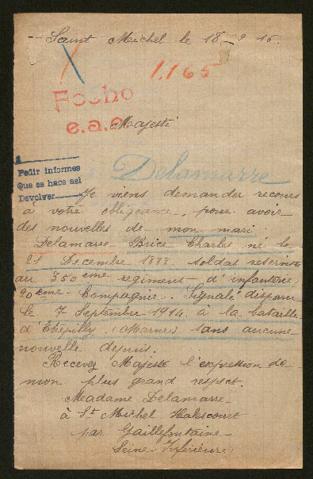 Saint Michel le 18-9 15.
1,165
Fecho
e.a.o
Majesté
Delamarre
Pedir informes
Que se hace así
Devolver
Je viens demander recours
à votre obligeance, pour avoir
des nouvelles de mon mari
Delamarre Brice Charles né le
21 Décembre 1883 soldat réserviste
au 350ème régiment d'infanterie
20ème Compagnie. Signalé disparu
le 7 Septembre 1914 à la bataille
d' (Marne) sans aucune
nouvelle depuis.
Recevez Majesté l'expression de
mon plus grand respect.
Madame Delamarre
à St Michel Halescourt
par Gaillefontaine
Seine Inférieure